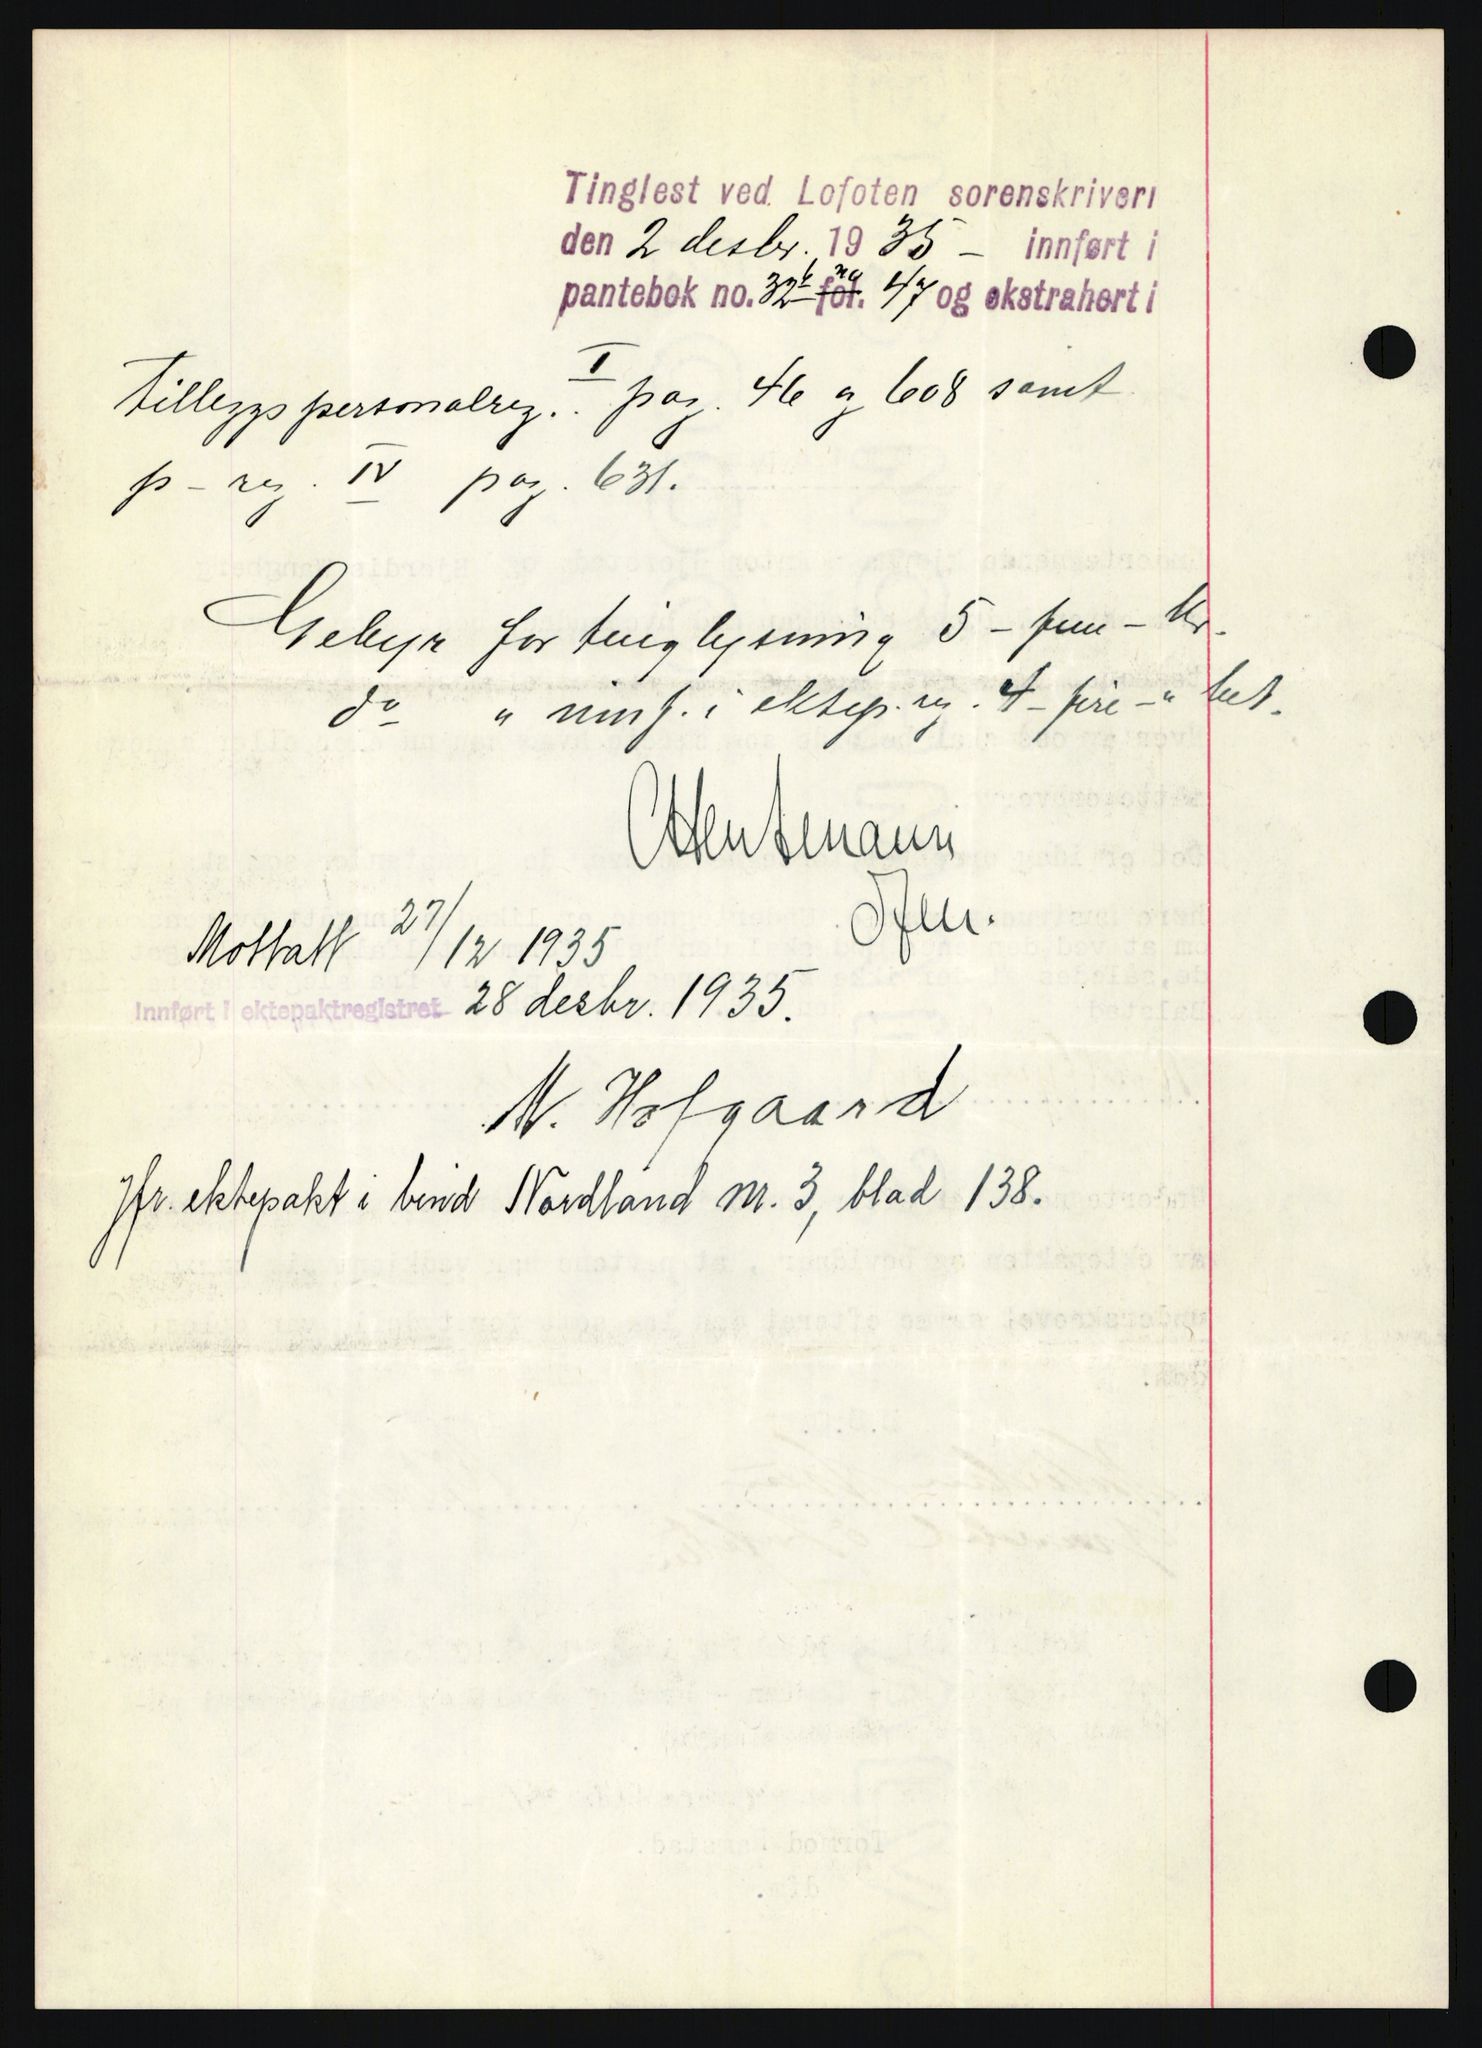 Tinglest ved Lofoten sorenskriveri
den 2 desbr. 1935 - innført i
pantebok no. 32b fol. ng 47 og ekstrahert i
Tilleggspersonalreg. I pag. 46 og 608 samt
p-reg. IV pag. 631.
Gebyr for tinglysning 5 - fem - kr.
do " innf. i ektep.reg. 4 - fire - " bet.
Mottatt 27/12 1935
Innført i ektepaktregistret 28 desbr. 1935.
M. Hofgaard
Jfr. ektepakt i bind Nordland nr. 3, blad 138.